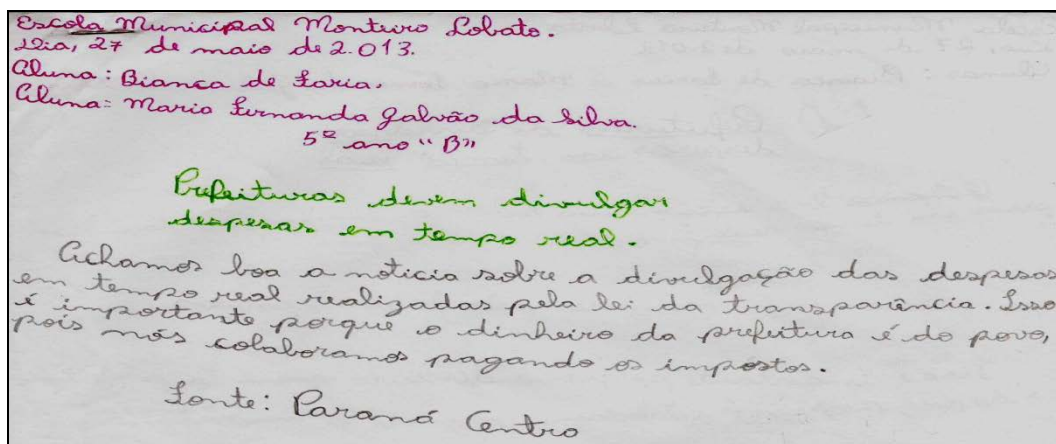 Escola Municipal Monteiro Lobato.
Dia, 27 de maio de 2.013.
Aluna: Bianca de Faria.
Aluna: Maria Fernanda Galvão da Silva.
5º ano "B"
Prefeituras devem divulgar
despesas em tempo real.
Achamos boa a noticia sobre a divulgação das despesas
em tempo real realizadas pela lei da transparência. Isso
é importante porque o dinheiro da prefeitura é do povo,
pois nós colaboramos pagando os impostos.
Fonte: Paraná Centro